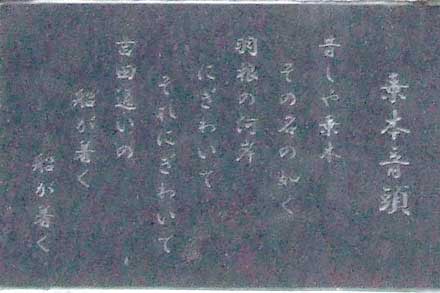 乗本音頭
昔しや乗本
その名の如く
羽根の河岸
にぎわいて
それにぎわいて
吉田通いの
船が着く
船が着く